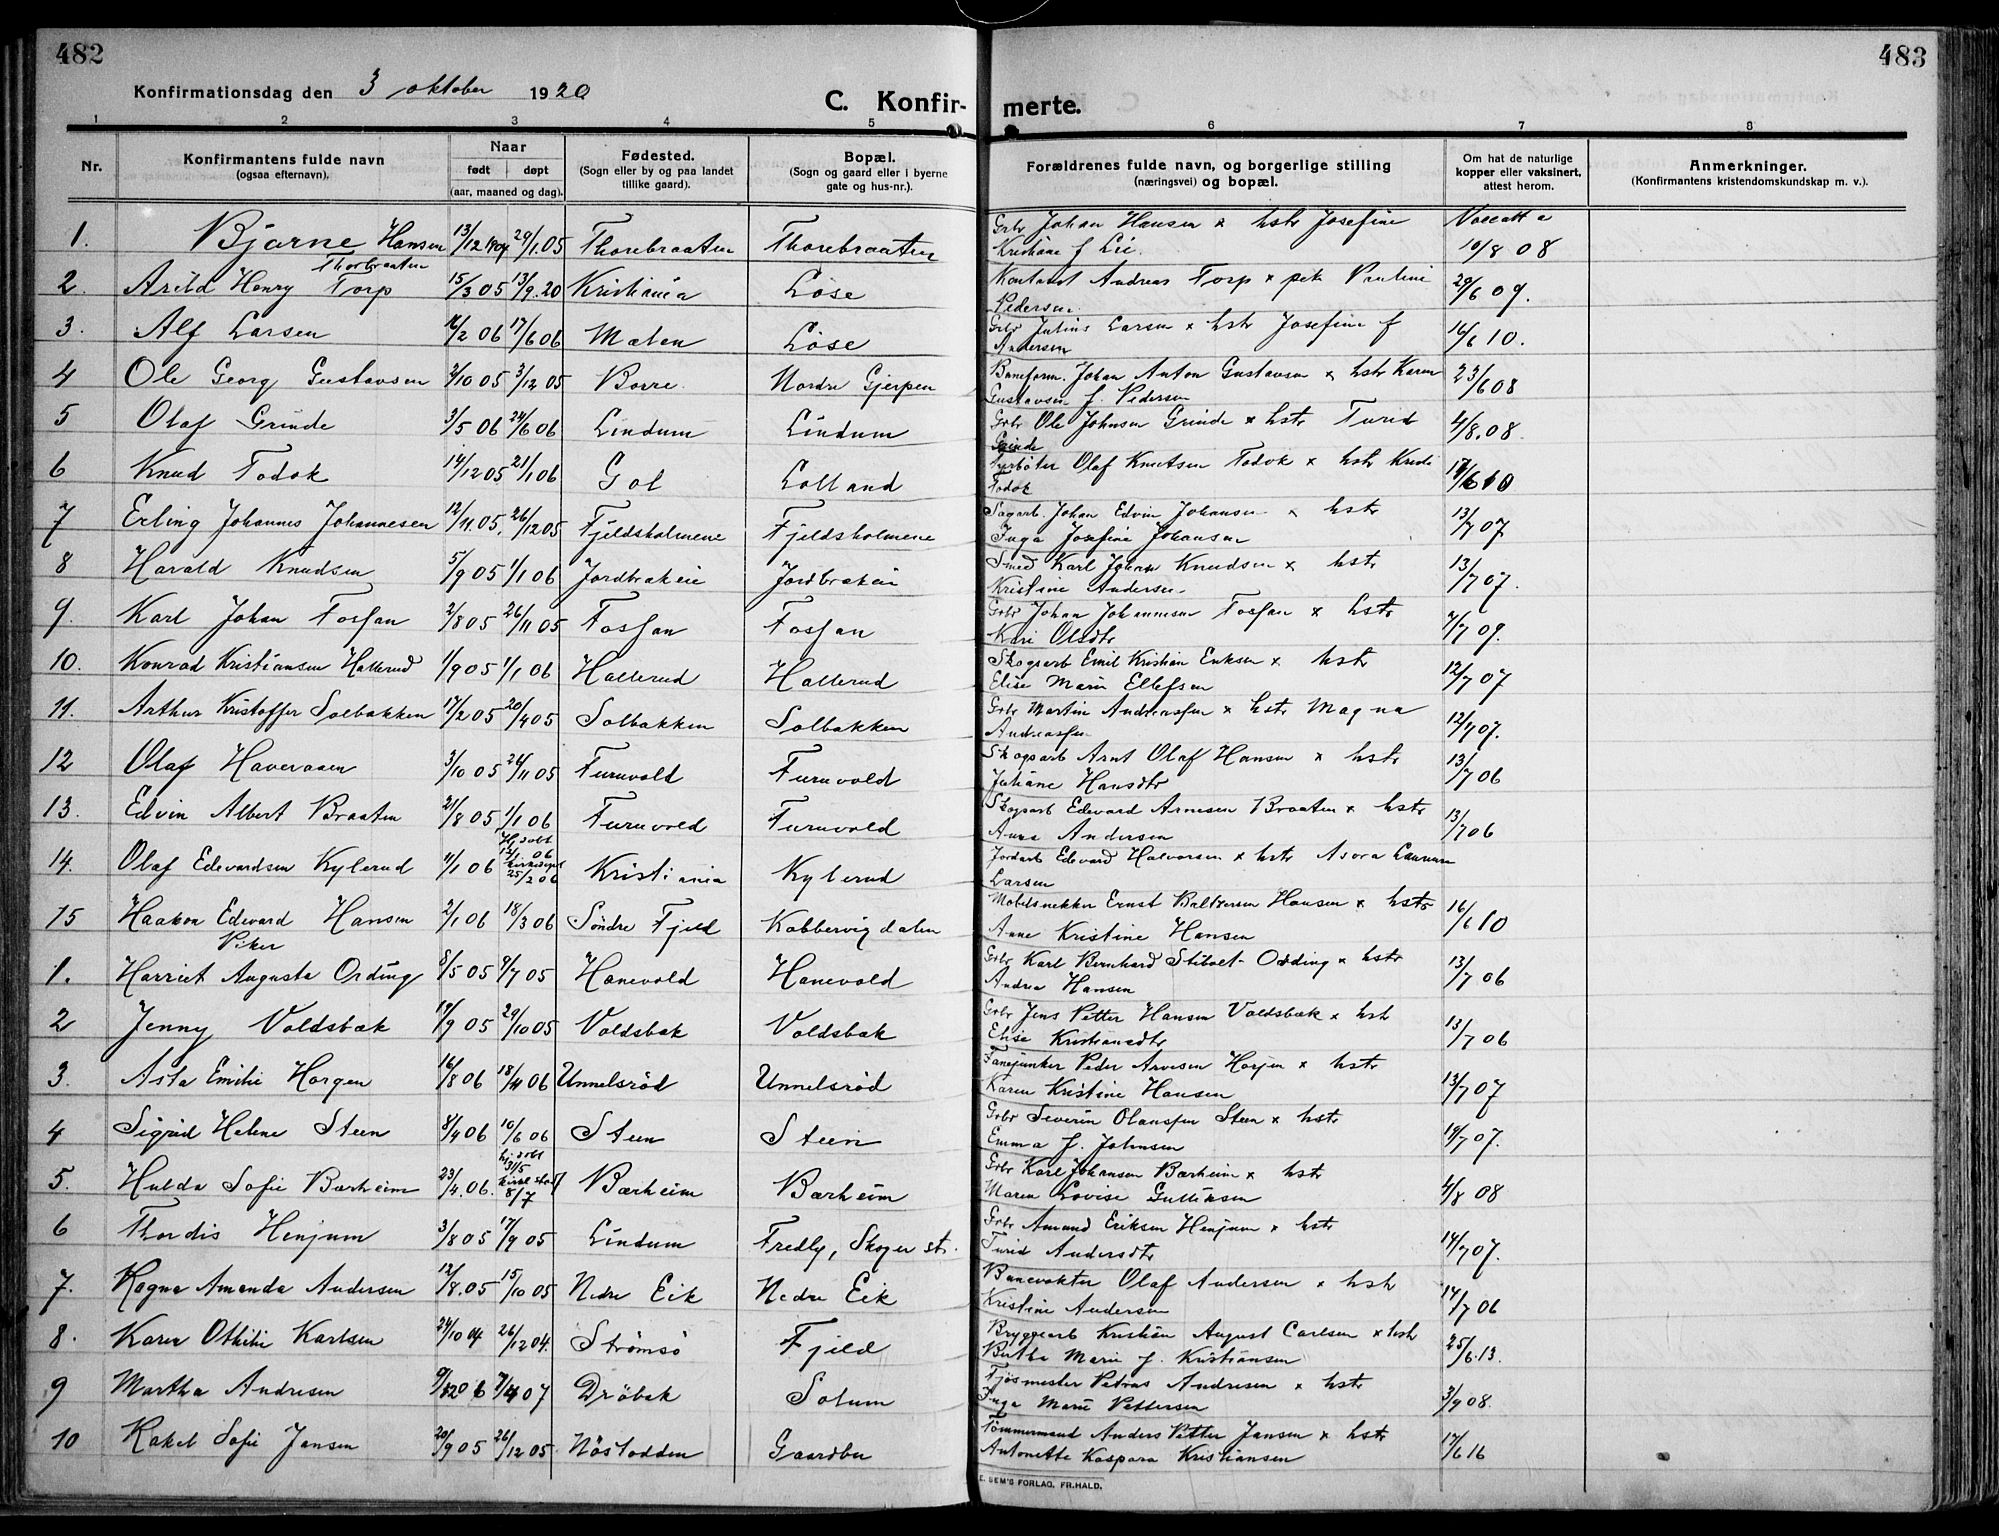 482
483
Konfirmationsdag den 3 oktober 1920
C. Konfir-
merte.
1 2 3 4 5 6 7 8
Nr.
Konfirmantens fulde navn
(ogsaa efternavn).
Naar
født døpt
(aar, maaned og dag).
Fødested.
(Sogn eller by og paa landet
tillike gaard).
Bopæl.
(Sogn og gaard eller i byerne
gate og hus-nr.).
Forældrenes fulde navn, og borgerlige stilling
(næringsvei) og bopæl.
Om hat de naturlige
kopper eller vaksinert,
attest herom.
Anmerkninger.
(Konfirmantens kristendomskundskap m. v.).
1. Bjarne Hansen 13/12 1904 29/1.05 Thorebraaten Thorebraaten Grbr Johan Hansen × hstr Josefine
Thorbraaten Kristiane f Lie. 19/8 08
2. Arild Henry Torp 15/3 05 13/9.20 Kristiania Løse Kontorist Andreas Torp × pek Pauline
Pedersen 29/6 09.
3. Alf Larsen 16/2 06 17/6 06 Mælen Løse Grbr Julius Larsen × hstr Josefine f
Andersen 16/6 10.
4 Ole Georg Gustavsen 2/10 05 3/12 05 Borre. Nordre Gjerpen Baneform. Johan Anton Gustavsen × hstr Karen
Gustavsen f. Pedersen 23/6 08
5 Olaf Grinde 3/5 06 24/6 06 Lindum Lindum Grbr Ole Johnsen Grinde × hstr Turid
Grinde 4/8.08.
6 Knud Todok 14/12 05 21/1 06 Gol Lolland Olaf Knutsen Todok × hstr
Todok 17/6 10
7 Erling Johannes Johannesen 12/11.05. 26/12 05 Fjeldsholmene Fjeldsholmene Sagarb. Johan Edvin Johansen × hstr
Inga Josefine Johansen 13/7 07
8 Harald Knudsen 5/9 05 1/1 06 Jordbrækeie Jordbrækeie Smed Karl Johan Knudsen × hstr
Kristine Andersen 13/7 07.
9. Karl Johan Fosfan 2/8 05 26/11 05 Fosfan Fosfan Grbr Johan Johannesen Fosfan × hstr
Kari Olsdtr 7/7 09.
10. Konrad Kristiansen Hallerud 1/9 05 1/1 06 Hallerud Hallerud Skogsarb Emil Kristian Eriksen × hstr
Elise Marie Ellefsen 12/7 07
11. Arthur Kristoffer Solbakken 17/2 05 20/4 05 Solbakken Solbakken Grbr Martin Andreassen × hstr Magna
Andreassen 12/7 07.
12 Olaf Haveraaen 3/10 05 26/11 05 Furuvold Furuvold Skogsarb Arnt Olaf Hansen × hstr
Juliane Hansdtr 13/7 06
13. Edvin Albert Braaten 21/8 05 1/1 06 Furuvold Furuvold Skogsarb Edevard Arnesen Braaten × hstr
Anna Andersen 13/7 06
14. Olaf Edevardsen Kylerud 11/1 06 Hj. døbt 12/1 06 25/2 06 Kristiania Kylerud Jordarb Edevard Halvorsen × hstr
Larsen
15 Haakon Edevard Hansen 2/1 06 18/3 06 Søndre Fjeld Kobbervigdalen Møbelsnekker Ernst Baltzersen Hansen × hstr
Viker Anne Kristine Hansen 16/6 10
1. Harriet Augusta Ording 8/5 05 9/7 05 Hanevold Hanevold Grbr Karl Bernhard Stibolt-Ording × hstr
Andrea Hansen 13/7 06
2 Jenny Voldsbæk 17/9 05 29/10 05 Voldsbæk Voldsbæk Grbr Jens Petter Hansen Voldsbæk × hstr
Elise Kristiansdtr 13/7 06
3. Asta Emilie Horgen 16/8 06 18/11 06 Unnelsrød Unnelsrød Fanejunker Peder Arvesen Horgen × hstr
Karen Kristine Hansen 13/7 07
4 Sigrid Helene Steen 8/4 06 10/6 06 Steen Steen Grbr Severin Olaussen Steen × hstr
Emma f. Johnsen 19/7 07.
5. Hulda Sofie Bærheim 23/4 06. hj. døbt 31/5 8/7 Bærheim Bærheim Grbr Karl Johansen Bærheim × hstr
Maren Lovise Gulliksen 4/8 08
6 Thordis Henjum 3/8 05 17/9 05 Lindum Fredly, Skoger st. Grbr Amund Eriksen Henjum × hstr
Turid Andersdtr 14/7 07.
7. Ragna Amanda Andersen 12/8.05 15/10 05 Nedre Eik Nedre Eik Banevokter Olaf Andersen × hstr
Kristine Andersen 14/7 06
8. Karen Othilie Karlsen 24/10 04 26/12 04. Strømsø Fjeld Bryggearb Kristian August Carlsen × hstr
Berthe Marie f. Kristiansen 25/6.13.
9 Martha Andresen 9/12 06 7/4 07 Drøbak Solum Fjøsmester Petrus Andresen × hstr
Inga Marie Pettersen 3/9 08.
10 Rakel Sofie Jansen 20/9 05 26/12 05. Nøstodden Gaardbu Tømmermand Anders Petter Jansen × hstr
Antonette Kaspara Kristiansen 17/6 16
E. SEM'S FORLAG, FR.HALD.